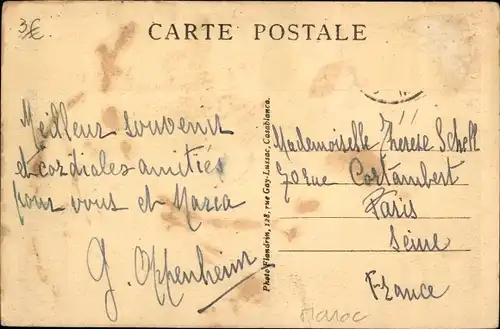 3€
CARTE POSTALE
Meilleur souvenir
et cordiales amitiés
pour vous et Maria
G. Oppenheim
Photo Flandrin, 128, rue Gay-Lussac, Casablanca.
Mademoiselle Thérèse Schell
70 rue Cortambert
Paris
Seine
France
Maroc